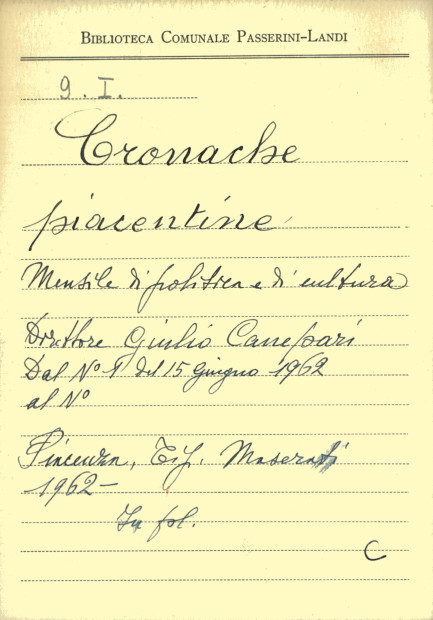 BIBLIOTECA COMUNALE PASSERINI-LANDI
9. I.
Cronache
piacentine
Mensile di politica e di cultura
Direttore Giulio Canepari
Dal N° 1 del 15 giugno 1962
al N°
Piacenza, Tip. Maserati
1962-
In fol.
C